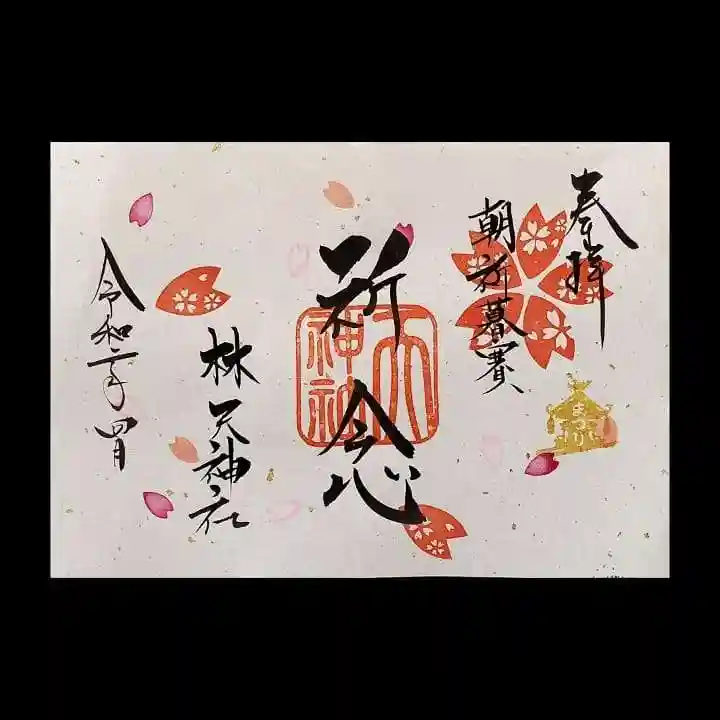 奉拝
朝祈暮賽
まつり
祈念
天神社
林天神社
令和二年 四月